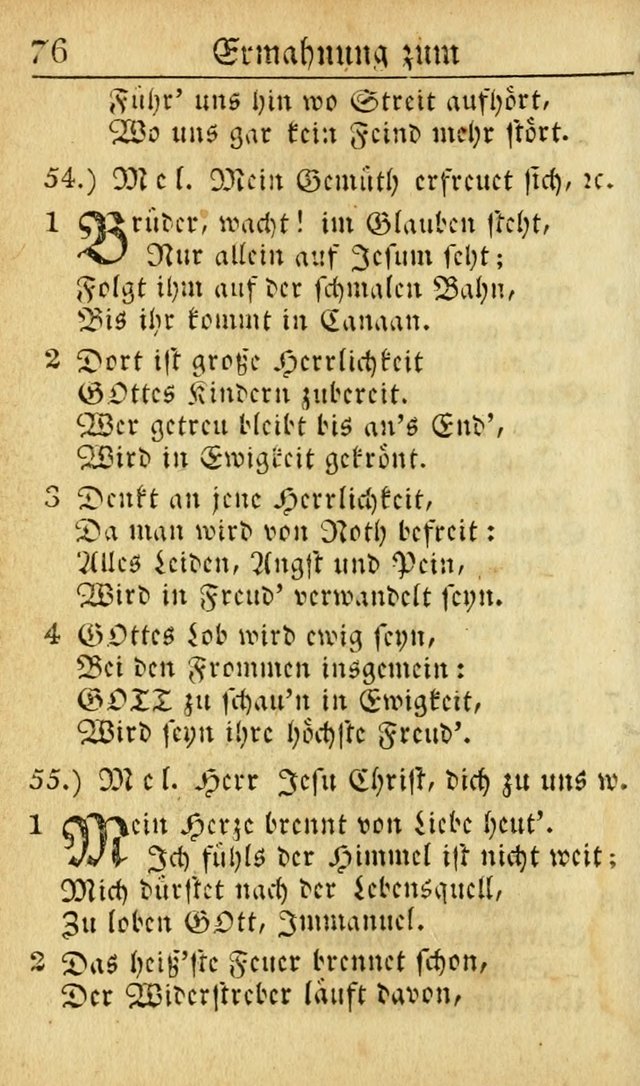 76 Ermahnung zum
Führ' uns hin wo Streit aufhört,
Wo uns gar kein Feind mehr stört.
54.) Mel. Mein Gemüth erfreuet sich, ꝛc.
1 Brüder, wacht! im Glauben steht,
Nur allein auf Jesum seht;
Folgt ihm auf der schmalen Bahn,
Bis ihr kommt in Canaan.
2 Dort ist große Herrlichkeit
GOttes Kindern zubereit.
Wer getreu bleibt bis an's End',
Wird in Ewigkeit gekrönt.
3 Denkt an jene Herrlichkeit,
Da man wird von Noth befreit:
Alles Leiden, Angst und Pein,
Wird in Freud' verwandelt seyn.
4 GOttes Lob wird ewig seyn,
Bei den Frommen insgemein:
GOTT zu schau'n in Ewigkeit,
Wird seyn ihre höchste Freud'.
55.) Mel. Herr Jesu Christ, dich zu uns w.
1 Mein Herze brennt von Liebe heut'.
Ich fühls der Himmel ist nicht weit;
Mich dürstet nach der Lebensquell,
Zu loben GOtt, Immanuel.
2 Das heiß'ste Feuer brennet schon,
Der Widerstreber läuft davon,